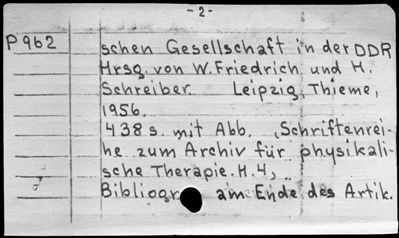 - 2 -
P 962 schen Gesellschaft in der DDR
Hrsg. von W. Friedrich und H.
Schreiber. Leipzig, Thieme,
1956.
438 s. mit Abb. „Schriftenrei-
he zum Archiv für physikali-
sche Therapie. H. 4,"
Bibliogr am Ende des Artik.